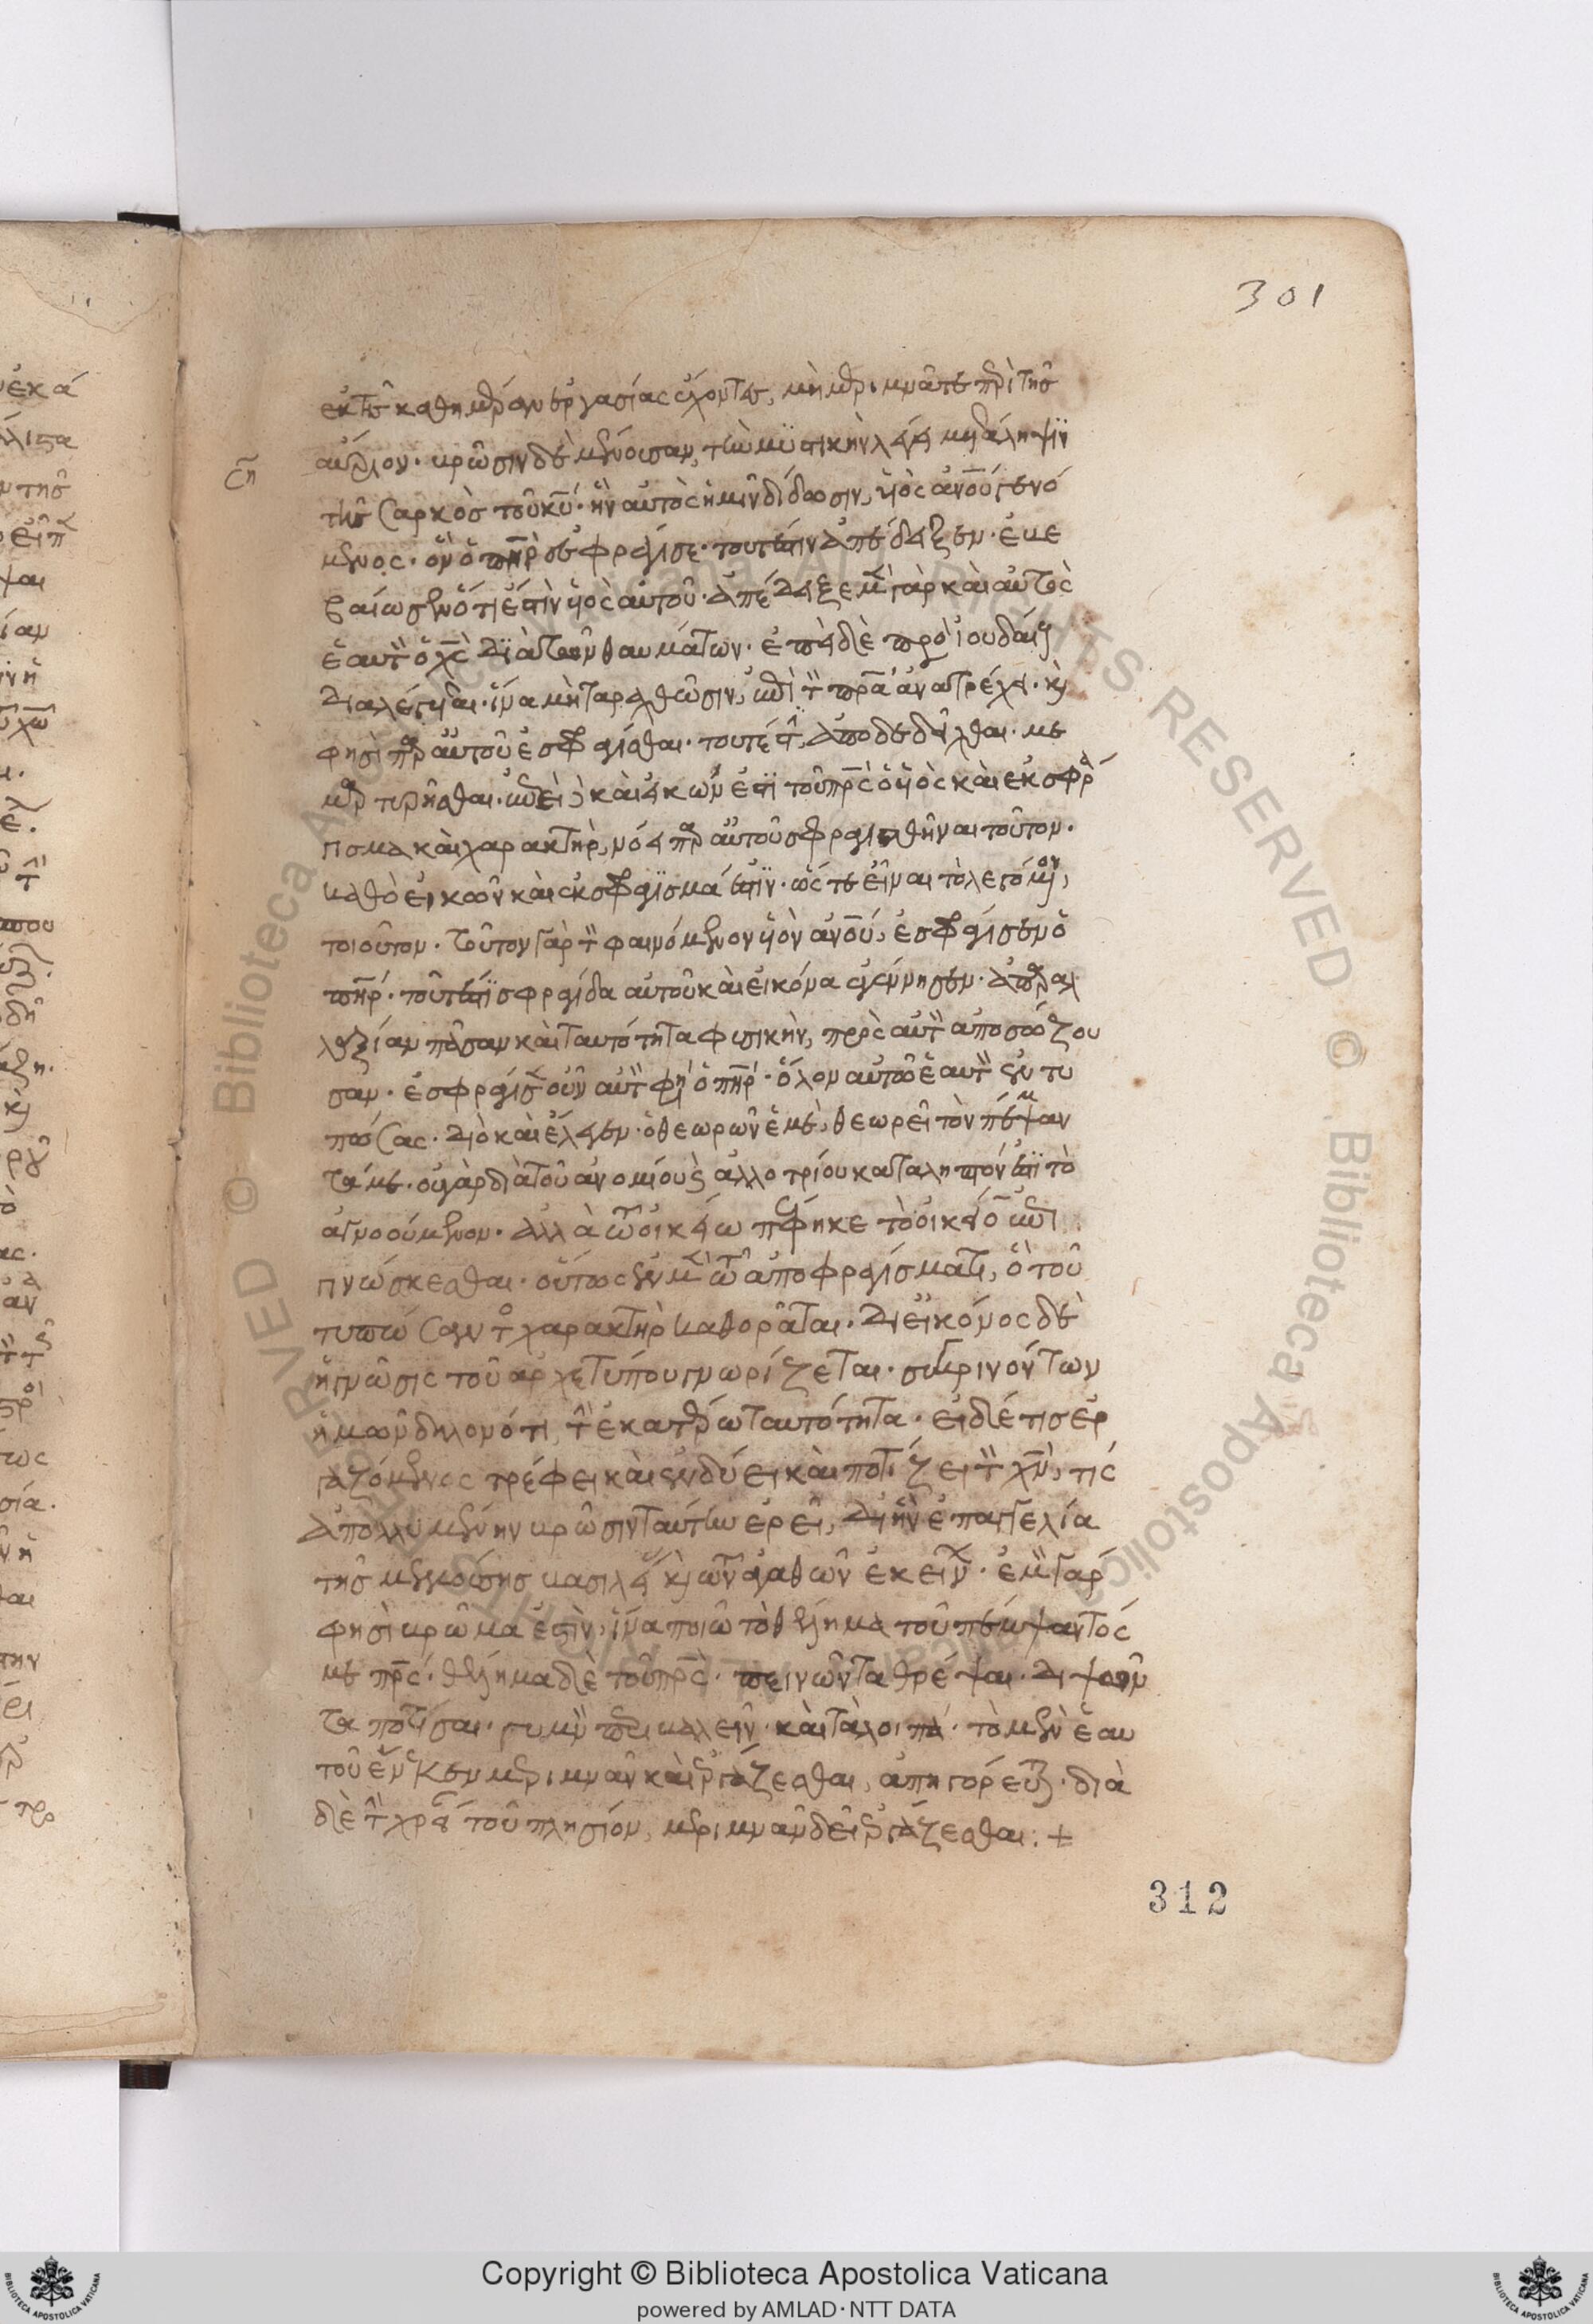 301
ἐκ τῆς καθημερινῆς ἐργασίας ἔχοντες, μὴ μεριμνᾶτε περὶ τῆς
αὔριον. βρῶσιν δὲ μένουσαν, τὴν μυστικὴν λέγει μετάληψιν
ση
τῆς σαρκὸς τοῦ κυ. ἣν αὐτὸς ἡμῖν δίδωσιν, υἱὸς ανου γενό
μενος. ὃν ὁ πηρ ἐσφράγισε. τουτέστιν ἀπέδειξεν. ἐβε
βαίωσεν ὅτι ἐστὶν υἱὸς αὐτοῦ. ἀπέδειξε μὲν γὰρ καὶ αὐτὸς
ἑαυτὸν ὁ χς διὰ τῶν θαυμάτων. ἐπεὶ δὲ πρὸς ἰουδαίους
διαλέγεται. ἵνα μὴ ταραχθῶσιν, ἐπὶ τὸν πρα ἀνατρέχει. καὶ
φησὶ παρ' αὐτοῦ ἐσφραγίσθαι. τουτέστιν, ἀποδεδεῖχθαι. με
μαρτυρῆσθαι. ἐπεὶ καὶ εἰκών ἐστι τοῦ πρς ὁ υἱὸς καὶ ἐκσφρά
γισμα καὶ χαρακτὴρ, νόει παρ' αὐτοῦ σφραγισθῆναι τοῦτον.
καθὸ εἰκὼν καὶ ἐκσφράγισμά ἐστιν. ὥστε εἶναι τὸ λεγόμενον,
τοιοῦτον. τοῦτον γὰρ τὸν φαινόμενον υἱὸν ανου, ἐσφράγισεν ὁ
πηρ. τουτέστι σφραγίδα αὐτοῦ καὶ εἰκόνα ἐγέννησεν. ἀπαραλ
λαξίαν πᾶσαν καὶ ταυτότητα φυσικὴν, πρὸς αὐτὸν ἀποσώζου
σαν. ἐσφράγισεν οὖν αὐτὸν φησὶ ὁ πηρ. ὅλον αὐτῷ ἑαυτὸν ἐντυ
πώσας. διὸ καὶ ἔλεγεν. ὁ θεωρῶν ἐμὲ, θεωρεῖ τὸν πέμψαν
τά με. οὐ γὰρ διὰ τοῦ ἀνομοίου καὶ ἀλλοτρίου καταληπτόν ἐστι τὸ
ἀγνοούμενον. ἀλλὰ τῷ οἰκείῳ πέφηκε τὸ οἰκεῖον ἐπι
γινώσκεσθαι. οὕτως ἐν μὲν τῷ ἀποσφραγίσματι, ὁ τοῦ
τυπώσαντος χαρακτὴρ καθορᾶται. δι' εἰκόνος δὲ
ἡ γνῶσις τοῦ ἀρχετύπου γνωρίζεται. συγκρινόντων
ἡμῶν δηλονότι τὴν ἐν ἑκατέρῳ ταυτότητα. εἰ δέ τις ἐρ
γαζόμενος τρέφει καὶ ἐνδύει καὶ ποτίζει τὸν χν, τίς
ἀπολλυμένην βρῶσιν ταύτην ἐρεῖ, δι' ἣν ἐπαγγελία
τῆς μενούσης βασιλείας καὶ τῶν ἀγαθῶν ἐκείνων. ἐμὸν γὰρ
φησὶ βρῶμα ἐστὶν, ἵνα ποιῶ τὸ θέλημα τοῦ πέμψαντός
με πρς. θέλημα δὲ τοῦ πρς. πεινῶντα θρέψαι. διψῶν
τα ποτίσαι. γυμνὸν περιβαλεῖν. καὶ τὰ λοιπά. τὸ μὲν ἑαυ
τοῦ ἕνεκεν μεριμνᾶν καὶ ἐργάζεσθαι, ἀπηγόρευται. διὰ
δὲ τὴν χρείαν τοῦ πλησίον, μεριμνᾶν δεῖ ἐργάζεσθαι: +
312
Copyright © Biblioteca Apostolica Vaticana
powered by AMLAD·NTT DATA